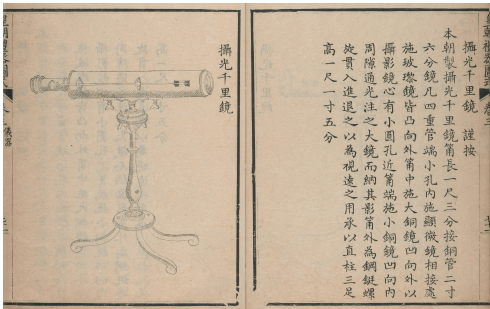 攝光千里鏡　謹按
本朝製攝光千里鏡筩長一尺三分接銅管二寸
六分鏡凡四重管端小孔内施顯微鏡相接處
施玻瓈鏡皆凸向外筩中施大銅鏡凹向外以
攝影鏡心有小圓孔近筩端施小銅鏡凹向内
周隙通光注之大鏡而納其影筩外為鋼鋌螺
旋貫入進退之以為視遠之用承以直柱三足
高一尺一寸五分
攝光千里鏡
皇朝禮器圖式
卷三
儀器